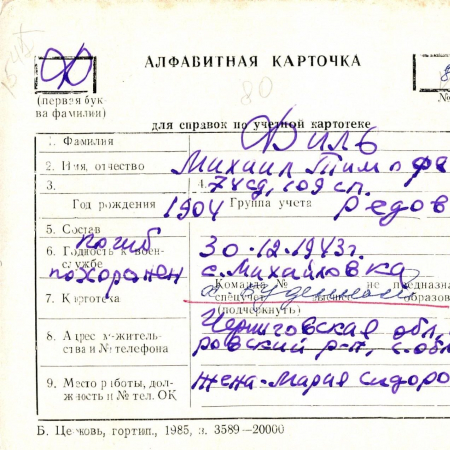 Ф
АЛФАБИТНАЯ КАРТОЧКА
80
8
(первая бук-
ва фамилии)
№
для справок по учетной картотеке
1. Фамилия Филь
2. Имя, отчество Михаил Тимофе
3. 4. 74 сд, 109 сп.
Год рождения 1904 Группа учета рядов
5. Состав погиб
6. Годность к воен- 30.12.1943г.
службе похоронен с. Михайловка
Команда № не предназна
7. Картотека спецучет образов
(подчеркнуть)
8. Адрес х-житель- Черниговская обл,
ства и № телефона ровский р-н, с. обл
9. Место работы, дол- жена-Мария Сидоро
жность и № тел. ОК
Б. Церковь, гортип., 1985, з. 3589—20000